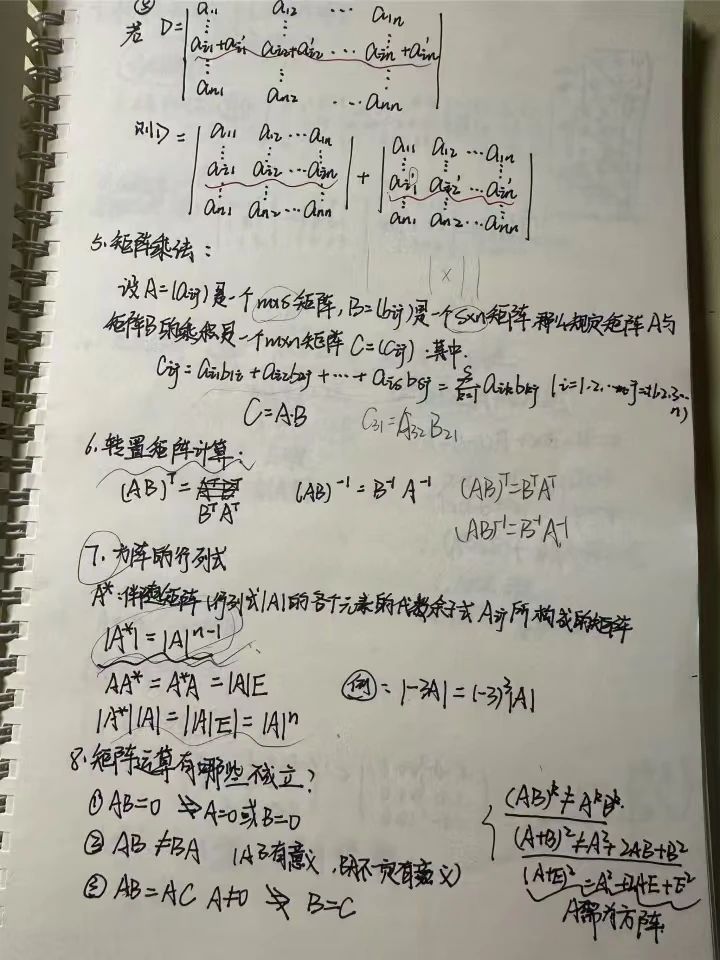 ③
若 D = | a11 a12 ⋯ a1n
⋮ ⋮ ⋮
ai1+ai1' ai2+ai2' ⋯ ain+ain'
⋮ ⋮ ⋮
an1 an2 ⋯ ann |
则D = | a11 a12 ⋯ a1n ⋮ ai1 ai2 ⋯ ain ⋮ an1 an2 ⋯ ann | + | a11 a12 ⋯ a1n ⋮ ai1' ai2' ⋯ ain' ⋮ an1 an2 ⋯ ann |
5.矩阵乘法:
|x||
设A=(aij)是一个m×s矩阵,B=(bij)是一个s×n矩阵,那么规定矩阵A与
矩阵B的乘积是一个m×n矩阵C=(cij).其中.
Cij = ai1b1j + ai2b2j + ⋯ + aisbsj = Σ(k=1, s) aikbkj (i=1.2.⋯m j=1.2.3⋯n)
C=A·B C31=A32B21
6.转置矩阵计算:
(AB)ᵀ = BᵀAᵀ (AB)⁻¹ = B⁻¹A⁻¹ (AB)ᵀ=BᵀAᵀ
(AB)⁻¹=B⁻¹A⁻¹
7.方阵的行列式
A*:伴随矩阵(行列式|A|的各个元素的代数余子式Aij所构成的矩阵
|A*| = |A|ⁿ⁻¹
AA* = A*A = |A|E 例: |-3A| = (-3)³|A|
|A*||A| = ||A|E| = |A|ⁿ
8.矩阵运算有哪些不成立?
① AB=0 ⇏ A=0或B=0
② AB ≠ BA (AB有意义,BA不一定有意义)
③ AB=AC A≠0 ⇏ B=C
(AB)ᵏ ≠ AᵏBᵏ.
(A+B)² ≠ A²+2AB+B²
(A+E)² = A²+2AE+E²
A需为方阵.